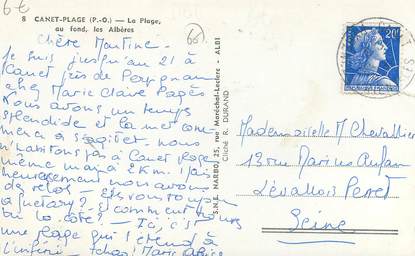 6€
8 CANET-PLAGE (P.-O.) — La Plage,
au fond, les Albères
66
Chère Martine -
Je suis jusqu'au 21 à
Canet près de Perpignan
chez Marie Claire Pagès
Nous avons un temps
splendide et la mer com-
mence à s'agiter - nous
n'habitons pas à Canet Plage
même mais à 2 km. Mais
heureusement nous avons
des vélos - Et vous
à
tu la côte? - Ici, c'est
une plage qui s'étend à
l'infini - tchao Marie
S.N.E. NARBO, 25, rue Maréchal-Leclerc - ALBI
Cliché R. DURAND
20F
Mademoiselle M Chevallier
13 rue Marius Aufan
Levallois Perret
Seine